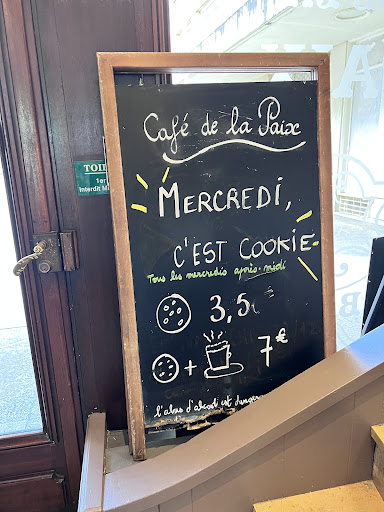 Café de la Paix
MERCREDI,
C'EST COOKIE
Tous les mercredis après-midi
3,5
+ 7€
l'abus d'alcool est dangereux
TOIL
1er
Interdit